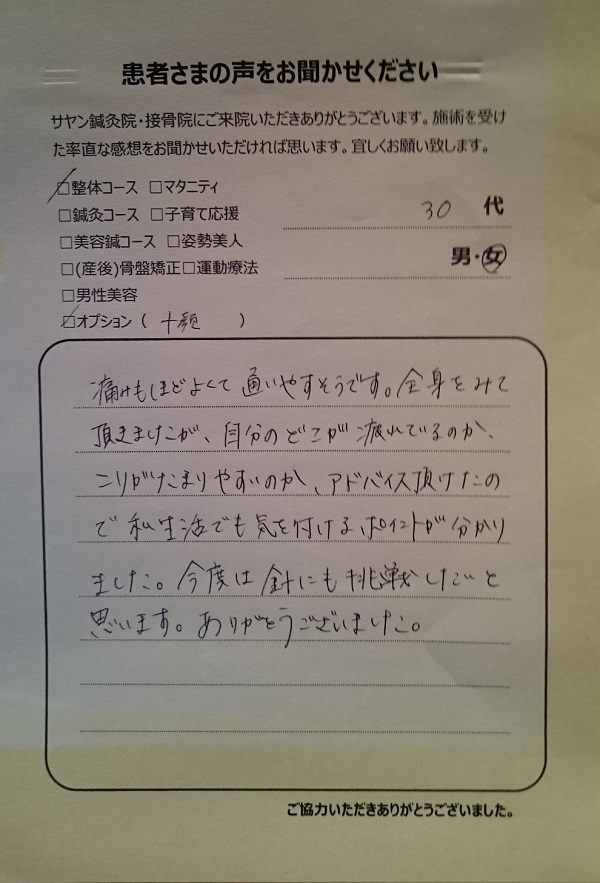 患者さまの声をお聞かせください
サヤン鍼灸院・接骨院にご来院いただきありがとうございます。施術を受け
た率直な感想をお聞かせいただければ思います。宜しくお願い致します。
☑整体コース □マタニティ
□鍼灸コース □子育て応援
30 代
□美容鍼コース □姿勢美人
男・女
□(産後)骨盤矯正□運動療法
□男性美容
☑オプション ( +顔 )
痛みもほどよくて通いやすそうです。全身をみて
頂きましたが、自分のどこが疲れているのか、
こりがたまりやすいのか、アドバイス頂けたの
で私生活でも気を付けるポイントが分かり
ました。今度は針にも挑戦したいと
思います。ありがとうございました。
ご協力いただきありがとうございました。